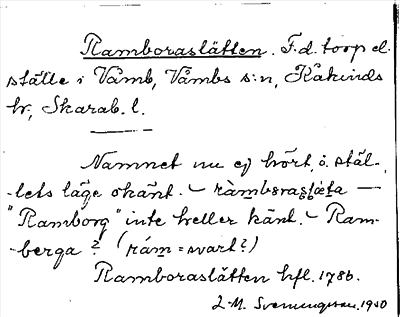 Ramboraslätten. F.d. torp el.
ställe i Våmb, Våmbs s:n, Kåkinds
hr, Skarab. l.
Namnet nu ej hört, o. stäl-
-lets läge okänt. – ràmboraslæta —
"Ramborg" inte heller känt. – Ram-
-berga? (rám = svart?)
Ramboraslätten hfl. 1786.
L-M. Svenungsson. 1950